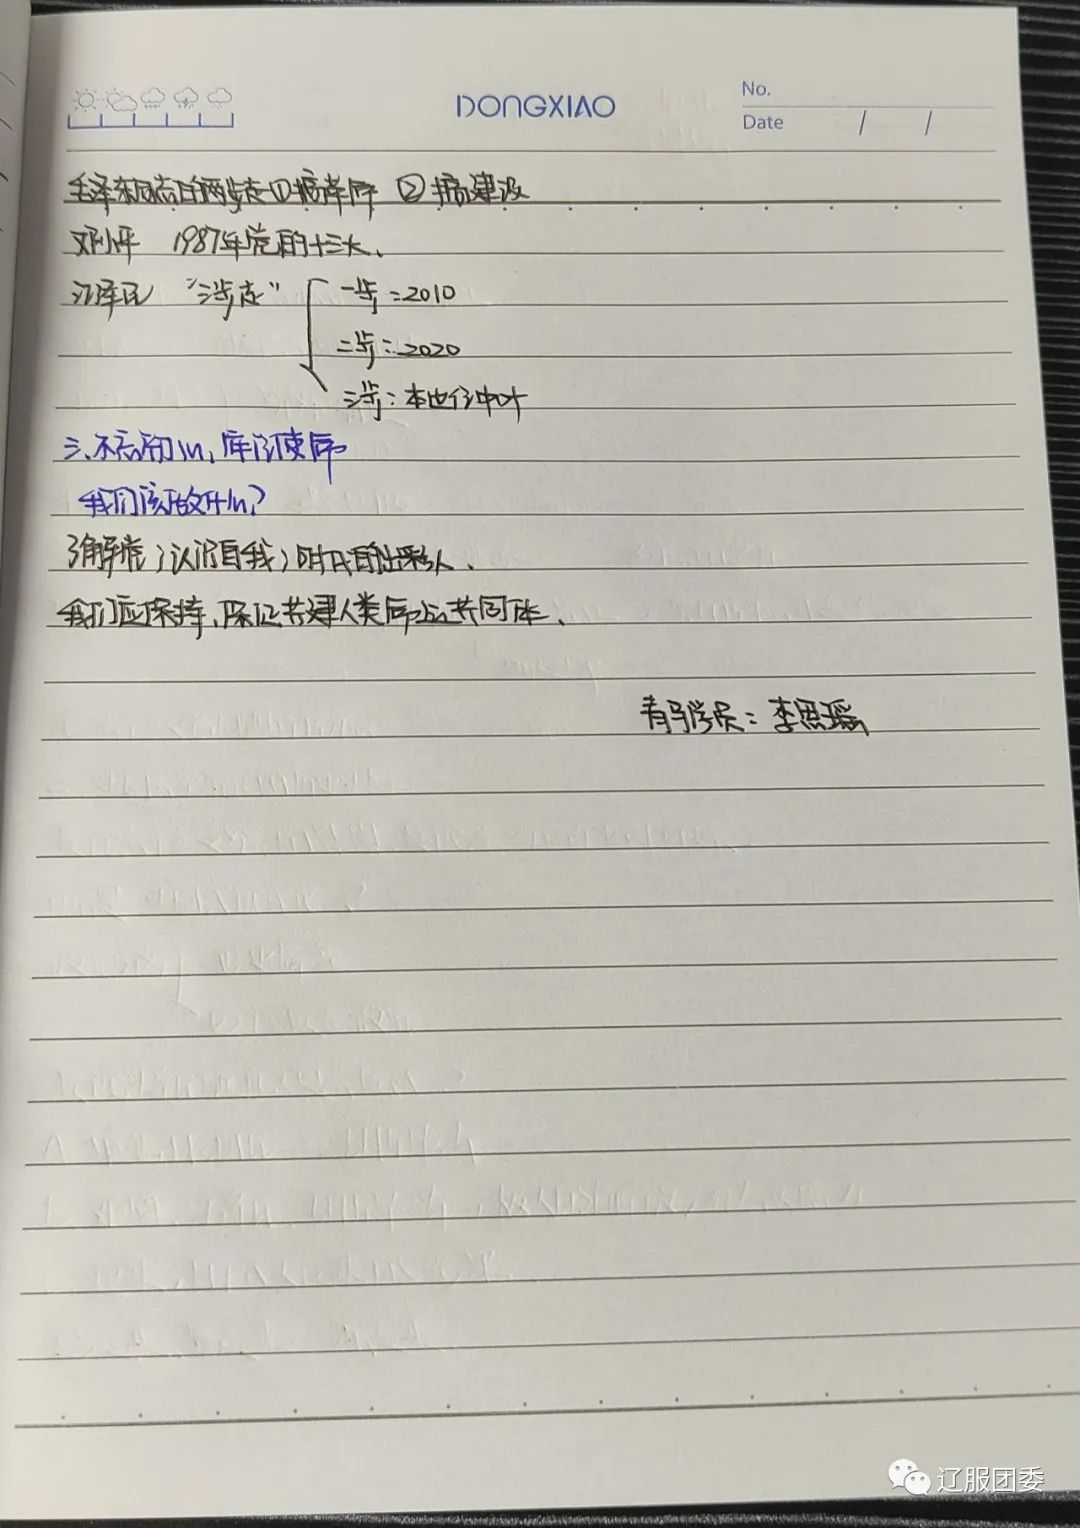 DONGXIAO
No.
Date / /
毛泽东同志的两步走①搞革命 ②搞建设
邓小平 1987年党的十三大、
江泽民 “三步走” 一步:2010
二步:2020
三步:本世纪中叶
三、不忘初心,牢记使命
我们该做什么?
了解党;认识自我;时代的出彩人、
我们应保持、保证共建人类命运共同体、
青马学员:李思瑶
辽服团委